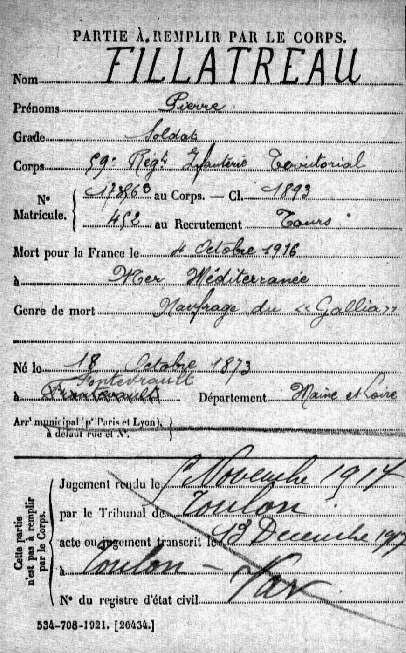 PARTIE À REMPLIR PAR LE CORPS.
Nom FILLATREAU
Prénoms Pierre
Grade Soldat
Corps 59e Regt Infanterie Territorial
N° Matricule. { au Corps. — Cl. 1893
452 au Recrutement Tours
Mort pour la France le 4 Octobre 1916
à Mer Méditerranée
Genre de mort Naufrage du « Gallia »
Né le 18 Octobre 1873
Fontevrault
à Département Maine et Loire
Arrt municipal (pr Paris et Lyon), à défaut rue et N°. {
Cette partie n'est pas à remplir par le Corps.
Jugement rendu le Novembre 1917
par le Tribunal de Toulon
acte ou jugement transcrit le 18 Decembre 1917
à Toulon — Var
N° du registre d'état civil
534-708-1921. [26434.]